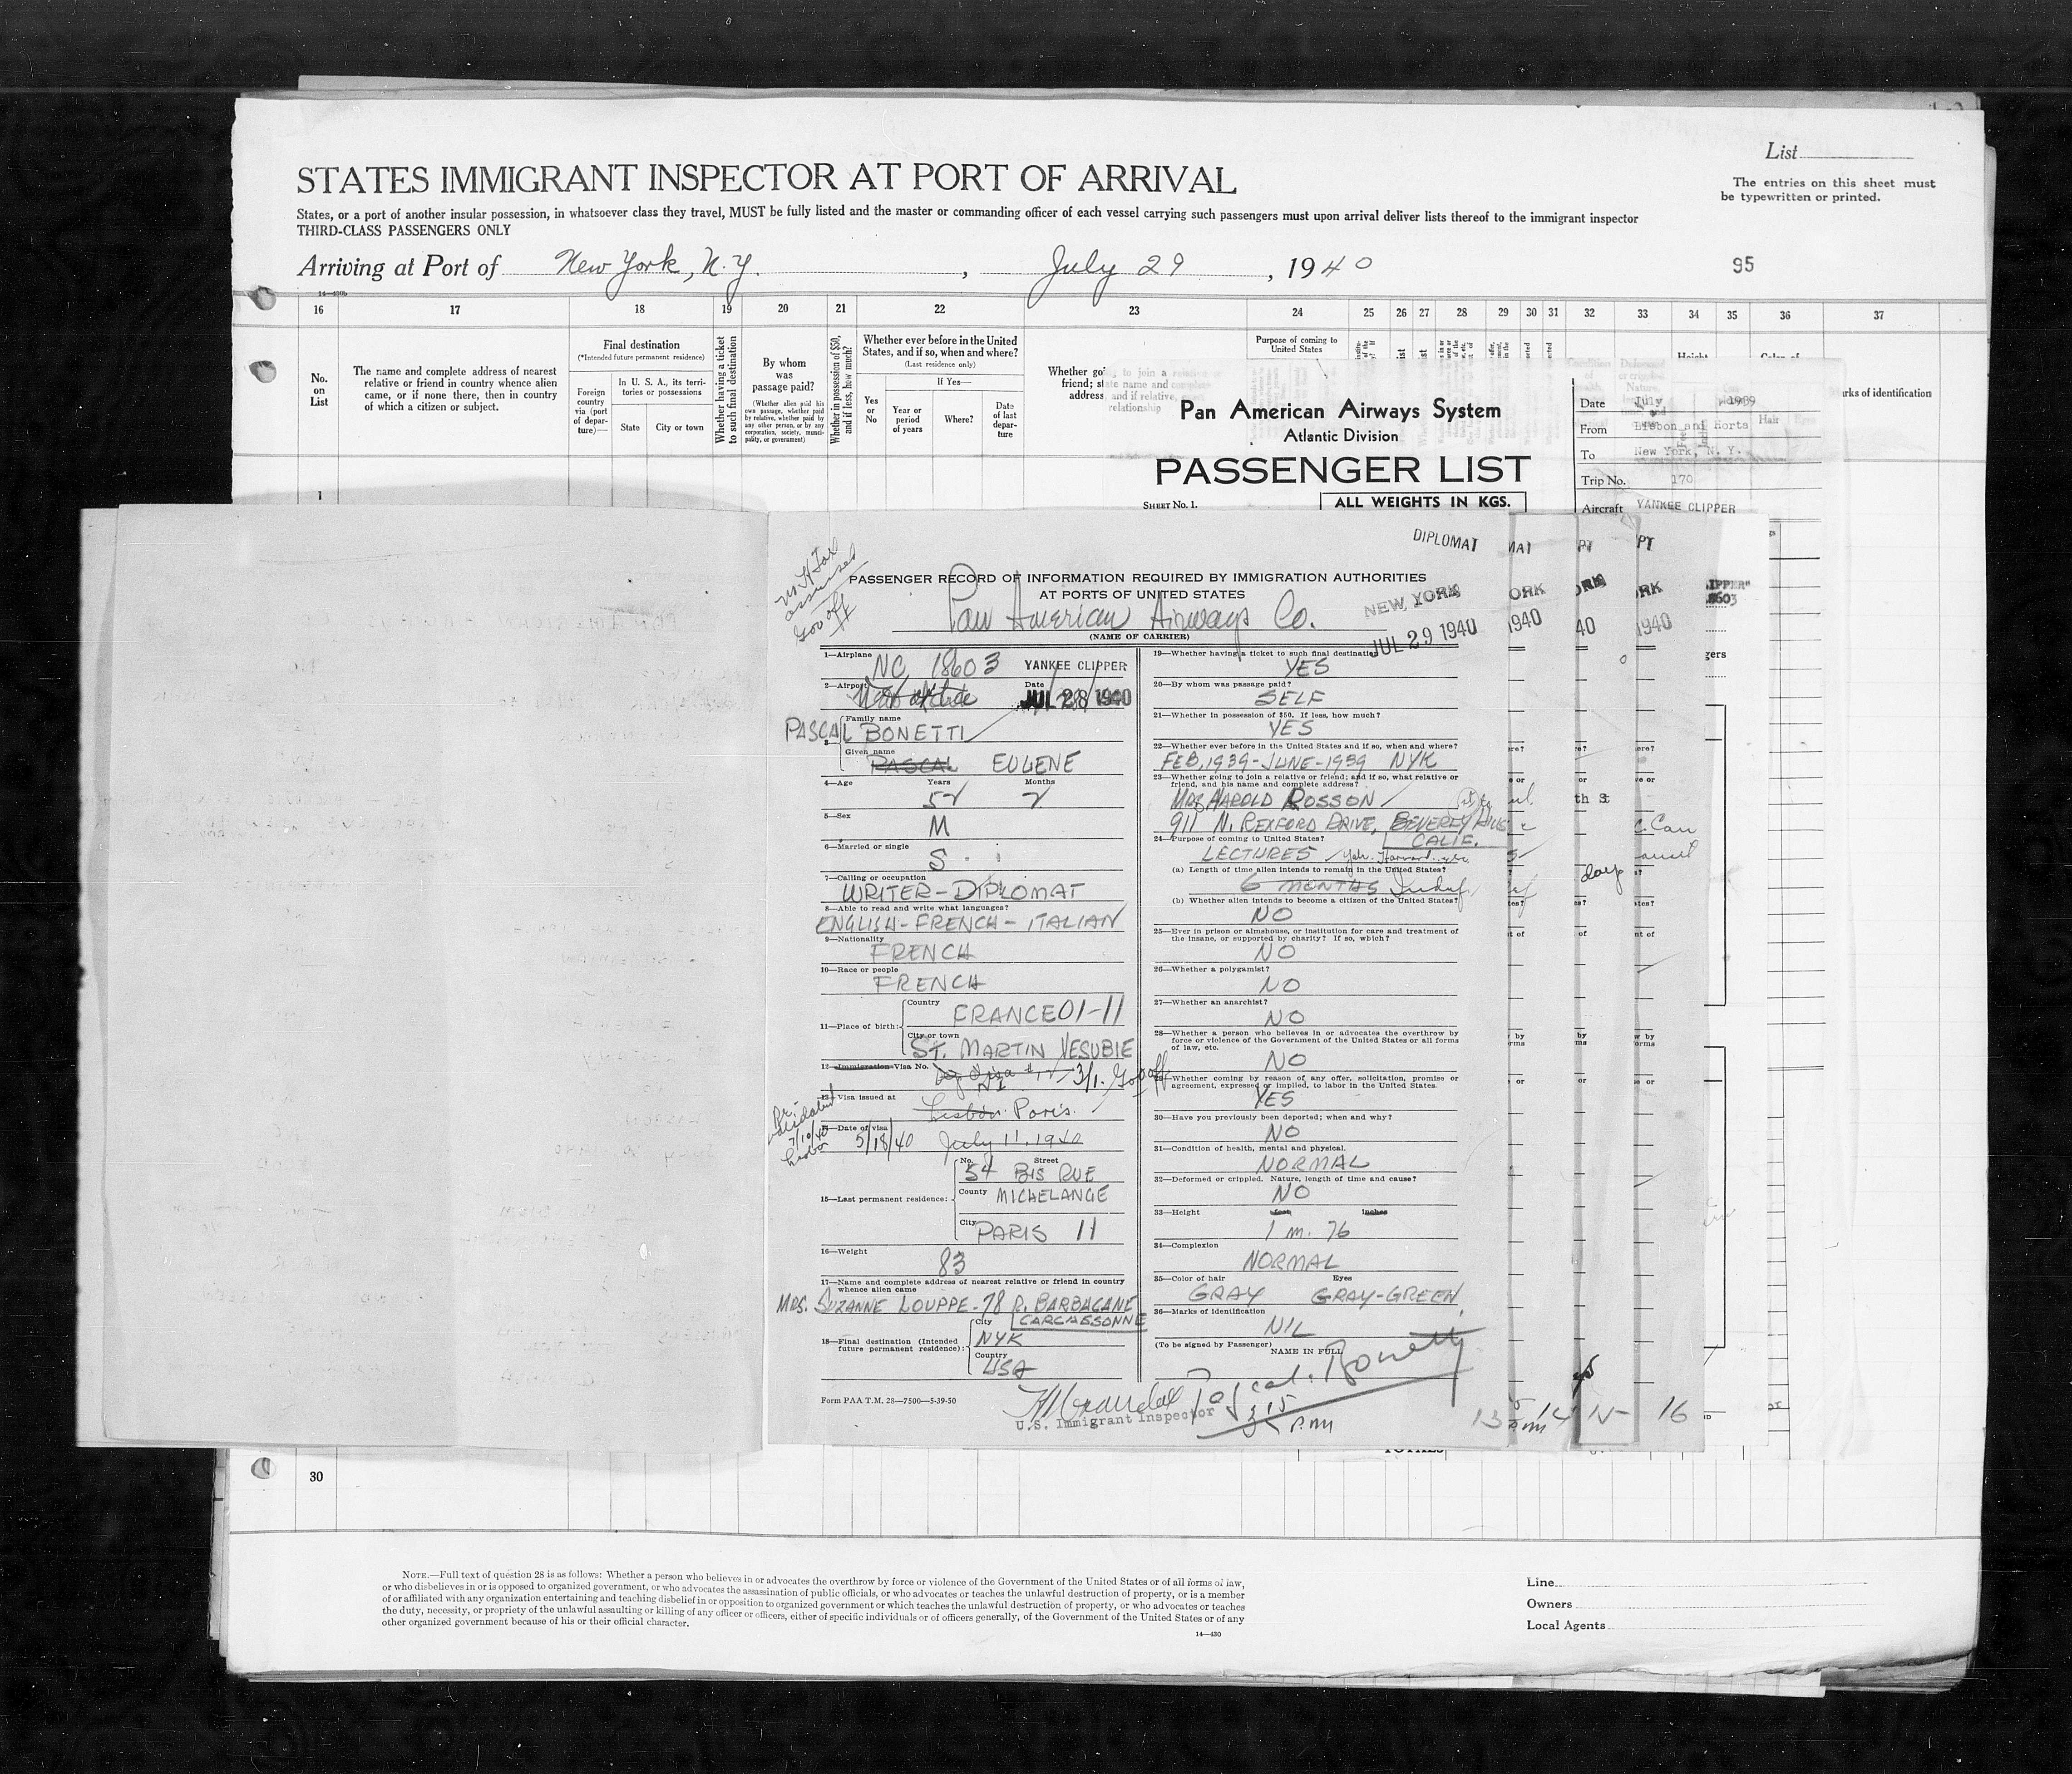 List
The entries on this sheet must
be typewritten or printed.
STATES IMMIGRANT INSPECTOR AT PORT OF ARRIVAL
States, or a port of another insular possession, in whatsoever class they travel, MUST be fully listed and the master or commanding officer of each vessel carrying such passengers must upon arrival deliver lists thereof to the immigrant inspector
THIRD-CLASS PASSENGERS ONLY
Arriving at Port of New York, N.Y. , July 29 , 1940
95
16 17 18 19 20 21 22 23 24 25 26 27 28 29 30 31 32 33 34 35 36 37
No.
on
List
The name and complete address of nearest
relative or friend in country whence alien
came, or if none there, then in country
of which a citizen or subject.
Final destination
(*Intended future permanent residence)
Foreign
country
via (port
of depar-
ture)—
In U. S. A., its terri-
tories or possessions
State City or town
Whether having a ticket
to such final destination
By whom
was
passage paid?
(Whether alien paid his
own passage, whether paid
by relative, whether paid by
any other person, or by any
corporation, society, munici-
pality, or government)
Whether in possession of $50,
and if less, how much?
Whether ever before in the United
States, and if so, when and where?
(Last residence only)
Yes
or
No
If Yes—
Year or
period
of years
Where?
Date
of last
depar-
ture
Purpose of coming to
United States
Marks of identification
Pan American Airways System
Atlantic Division
PASSENGER LIST
SHEET No. 1.
ALL WEIGHTS IN KGS.
Date July 1939
From Lisbon and Horta
To New York, N. Y.
Trip No. 170
Aircraft YANKEE CLIPPER
1
DIPLOMAT
PASSENGER RECORD OF INFORMATION REQUIRED BY IMMIGRATION AUTHORITIES
AT PORTS OF UNITED STATES
NEW YORK
JUL 29 1940
Pan American Airways Co.
(NAME OF CARRIER)
1—Airplane NC 18603 YANKEE CLIPPER
2—Airport Date JUL 28 1940
3 Family name PASCAL BONETTI
Given name PASCAL EUGENE
4—Age Years 52 Months 2
5—Sex M
6—Married or single S
7—Calling or occupation
WRITER-DIPLOMAT
8—Able to read and write what languages?
ENGLISH-FRENCH-ITALIAN
9—Nationality
FRENCH
10—Race or people
FRENCH
11—Place of birth: Country FRANCE 01-11
City or town
ST. MARTIN VESUBIE
12—Immigration Visa No. 3/1. Gov off
13—Visa issued at Lisbon Paris.
14—Date of visa 5/18/40 July 11, 1940
15—Last permanent residence: No. Street
54 BIS RUE
County MICHELANGE
City PARIS 11
16—Weight 83
17—Name and complete address of nearest relative or friend in country
whence alien came
MRS. SUZANNE LOUPPE-78 R. BARBACANE
CARCASSONNE
18—Final destination (Intended
future permanent residence): City NYK
Country USA
Form PAA T.M. 28—7500—5-39-50
U.S. Immigrant Inspector
19—Whether having a ticket to such final destination
YES
20—By whom was passage paid?
SELF
21—Whether in possession of $50. If less, how much?
YES
22—Whether ever before in the United States and if so, when and where?
FEB, 1939-JUNE-1939 NYK
23—Whether going to join a relative or friend; and if so, what relative or
friend, and his name and complete address?
MRS HAROLD ROSSON
911 N. REXFORD DRIVE, BEVERLY HILLS
CALIF.
24—Purpose of coming to United States?
LECTURES Yale, Harvard, etc.
(a) Length of time alien intends to remain in the United States?
6 MONTHS Indef.
(b) Whether alien intends to become a citizen of the United States?
NO
25—Ever in prison or almshouse, or institution for care and treatment of
the insane, or supported by charity? If so, which?
NO
26—Whether a polygamist?
NO
27—Whether an anarchist?
NO
28—Whether a person who believes in or advocates the overthrow by
force or violence of the Government of the United States or all forms
of law, etc.
NO
29—Whether coming by reason of any offer, solicitation, promise or
agreement, expressed or implied, to labor in the United States.
YES
30—Have you previously been deported; when and why?
NO
31—Condition of health, mental and physical.
NORMAL
32—Deformed or crippled. Nature, length of time and cause?
NO
33—Height feet inches
1 m. 76
34—Complexion
NORMAL
35—Color of hair Eyes
GRAY GRAY-GREEN
36—Marks of identification
NIL
(To be signed by Passenger)
NAME IN FULL
Pascal Bonetti
3 15
P.M
16
30
NOTE.—Full text of question 28 is as follows: Whether a person who believes in or advocates the overthrow by force or violence of the Government of the United States or of all forms of law,
or who disbelieves in or is opposed to organized government, or who advocates the assassination of public officials, or who advocates or teaches the unlawful destruction of property, or is a member
of or affiliated with any organization entertaining and teaching disbelief in or opposition to organized government or which teaches the unlawful destruction of property, or who advocates or teaches
the duty, necessity, or propriety of the unlawful assaulting or killing of any officer or officers, either of specific individuals or of officers generally, of the Government of the United States or of any
other organized government because of his or their official character.
14—430
Line
Owners
Local Agents